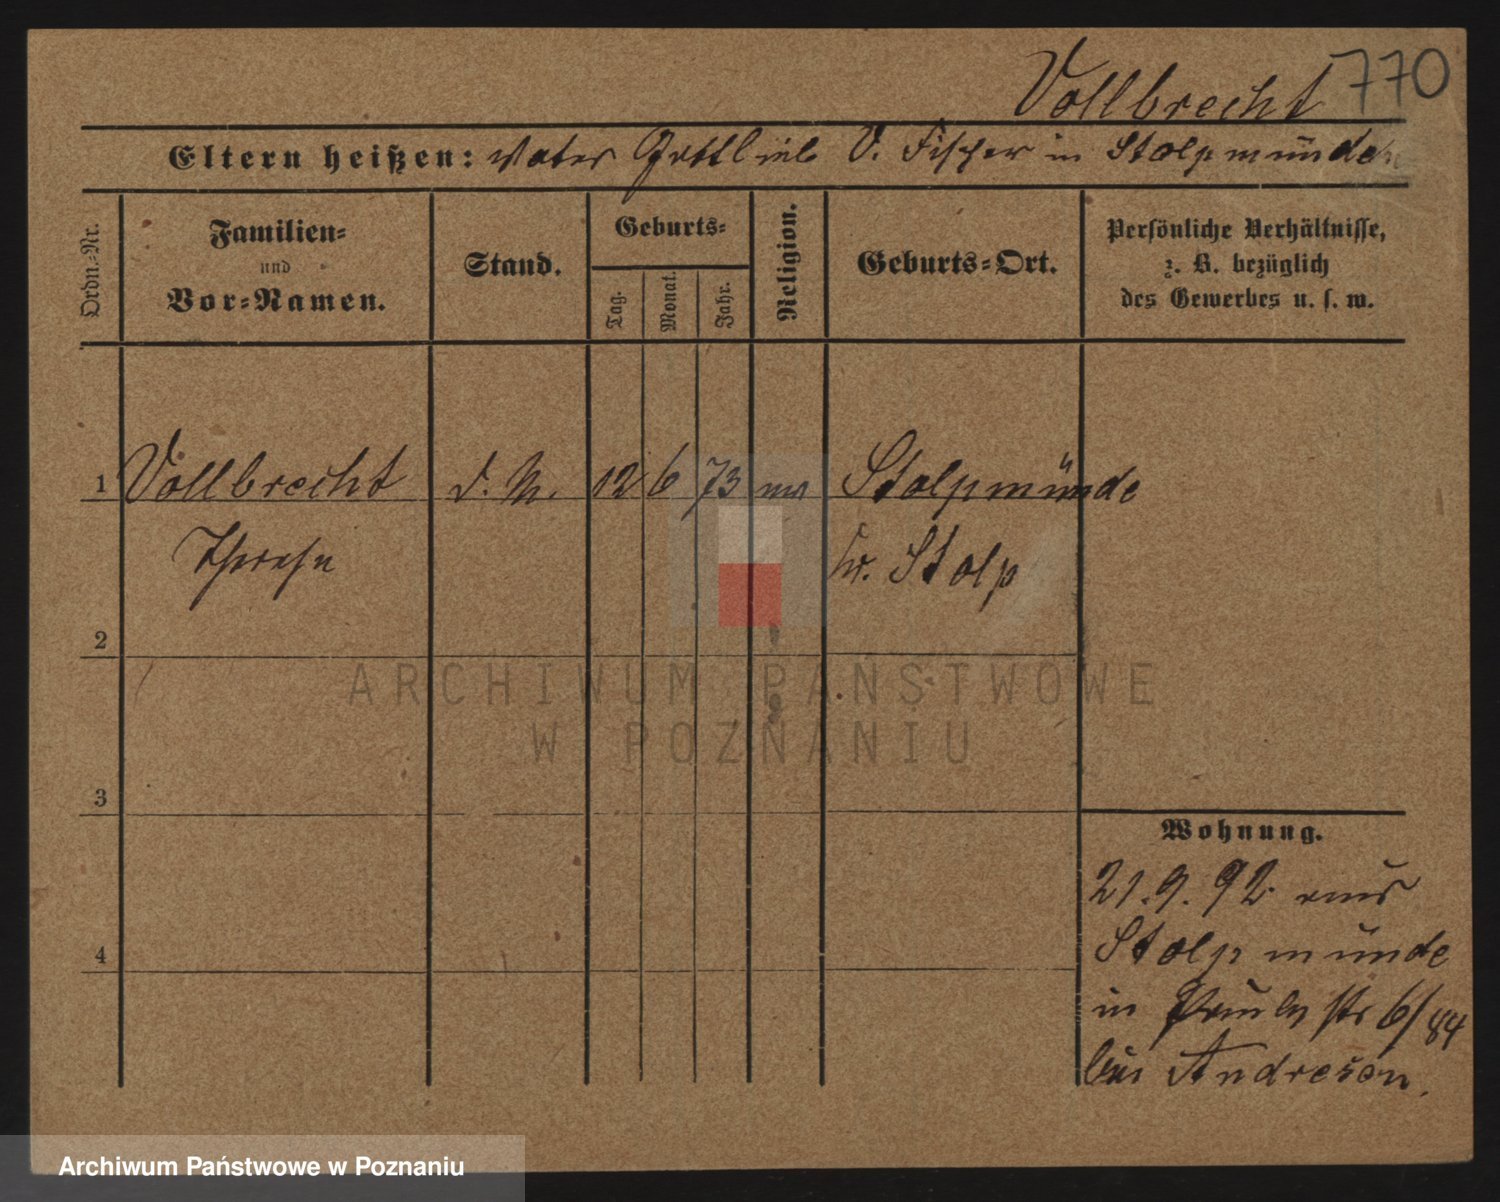 Vollbrecht 770
Eltern heißen: Vater Gottlieb V. Fischer in Stolpmünde
Ordn.-Nr.
Familien-
und
Vor-Namen.
Stand.
Geburts-
Tag.
Monat.
Jahr.
Religion.
Geburts-Ort.
Persönliche Verhältnisse,
z. B. bezüglich
des Gewerbes u. s. w.
1 Vollbrecht d. M. 12 6 73 Stolpmünde
Therese Kr. Stolp
2
3
4
ARCHIWUM PAŃSTWOWE
W POZNANIU
Wohnung.
21.9.92 aus
Stolpmünde
in Paulistr 6/84
bei Andresen.
Archiwum Państwowe w Poznaniu